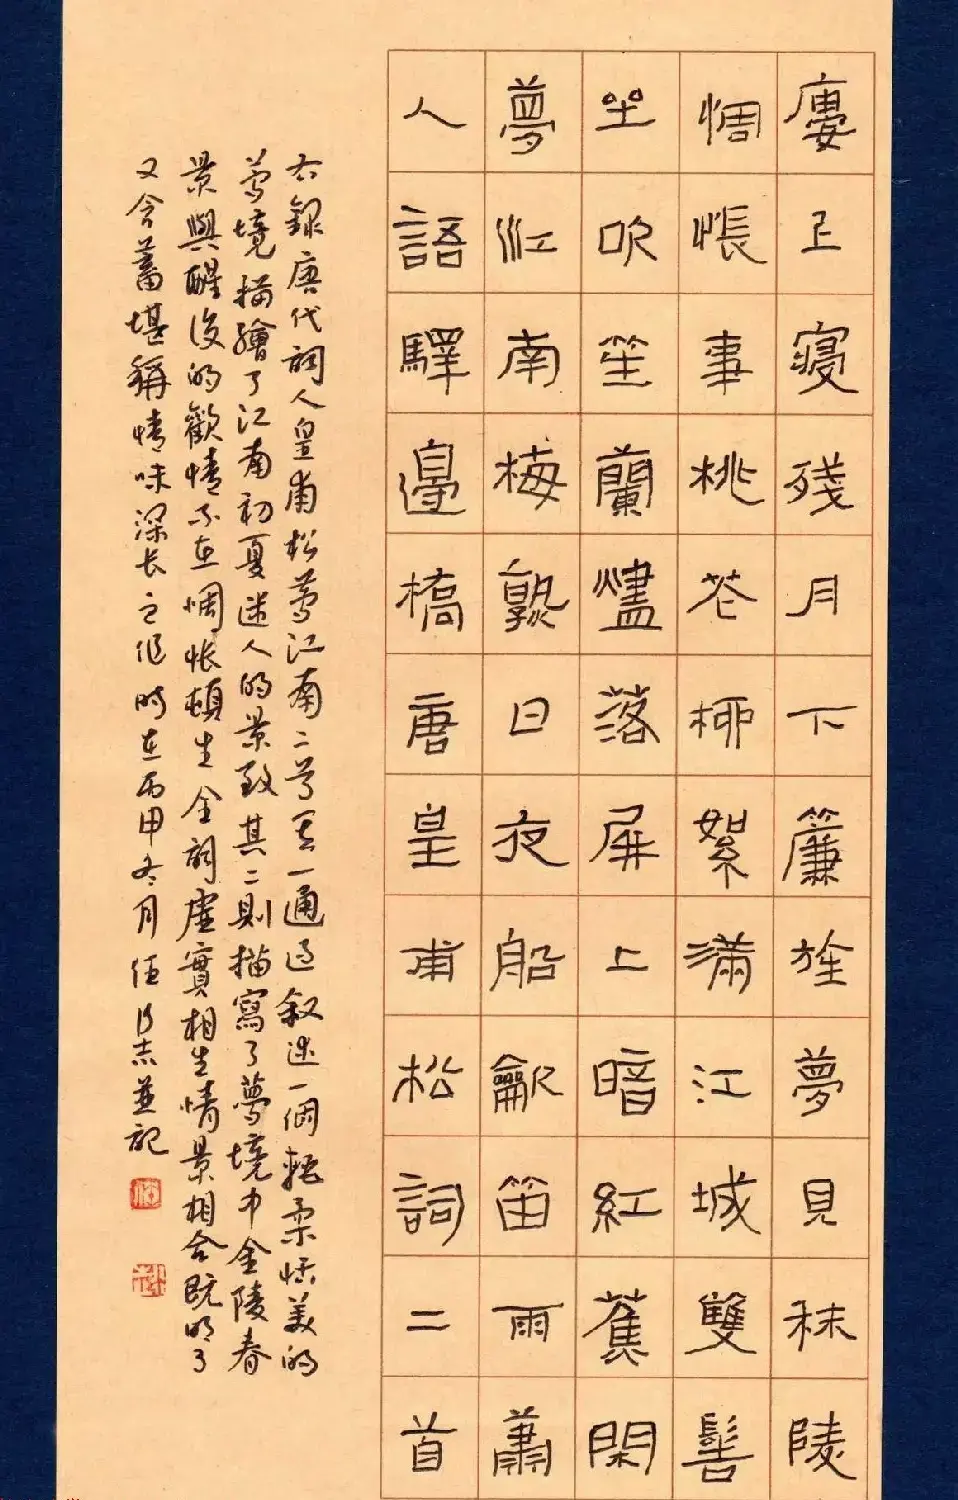 廔上寢殘月下簾旌夢見秣陵
惆悵事桃花柳絮滿江城雙髻
坐吹笙蘭燼落屏上暗紅蕉閑
夢江南梅熟日夜船龡笛雨蕭
人語驛邊橋唐皇甫松詞二首
右錄唐代詞人皇甫松夢江南二首其一通過叙述一個輕柔恬美的
夢境描繪了江南初夏迷人的景致其二則描寫了夢境中金陵春
景與醒後的歡情不在惆怅頓生全詞虛實相生情景相合既明了
又含蓄堪稱情味深长之作時在丙申冬月任志並記